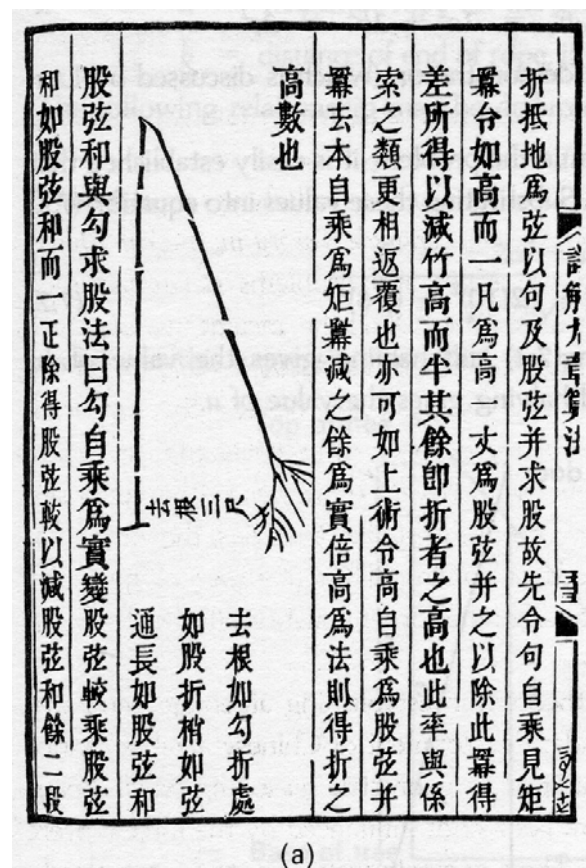 詳解九章算法
折抵地爲弦以句及股弦并求股故先令句自乘見矩
羃合如高而一凡爲高一丈爲股弦并之以除此羃得
差所得以減竹高而半其餘卽折者之高也此率與係
索之類更相返覆也亦可如上術令高自乘爲股弦并
羃去本自乘爲矩羃減之餘爲實倍高爲法則得折之
高數也
去根三尺
去根如勾折處
如股折梢如弦
通長如股弦和
股弦和與勾求股法曰勾自乘爲實變股弦較乘股弦
和如股弦和而一正除得股弦較以減股弦和餘二段
(a)